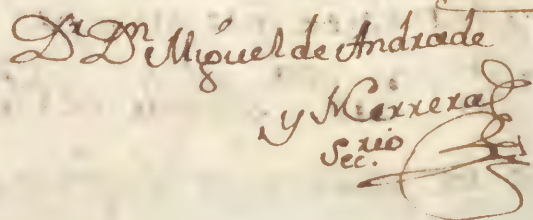 Dr. Dn. Miguel de Andrade
y Herrera
Sec.rio